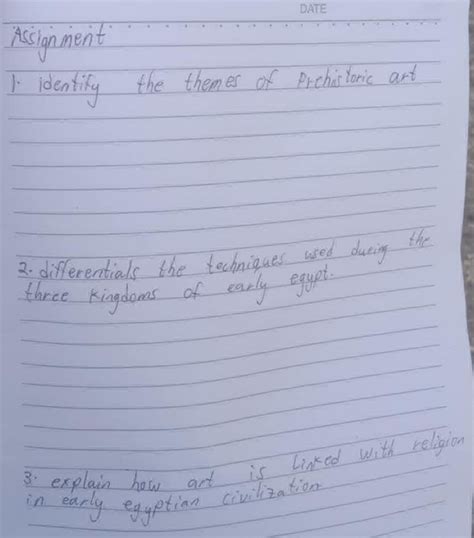 DATE
Assignment
1. identify the themes of Prehistoric art
2. differentials the techniques used during the
three Kingdoms of early egypt.
3. explain how art is linked with religion
in early egyptian civilization